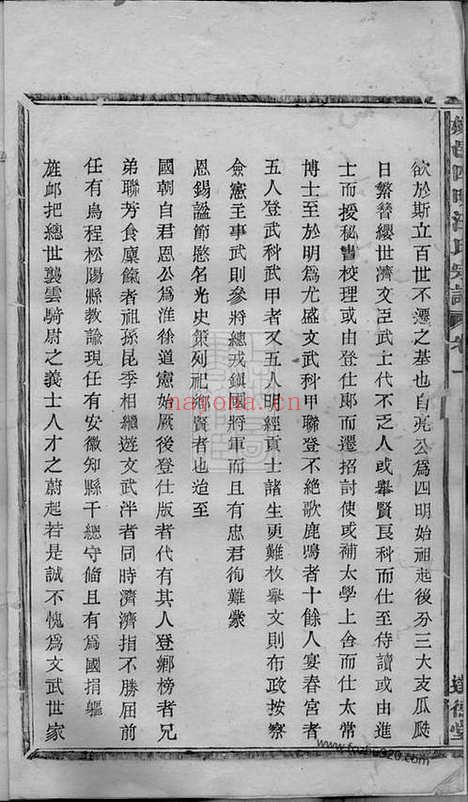 欲於斯立百世不遷之基也自亮公爲四明始祖起後分三大支瓜瓞
日繁簪纓世濟文臣武士代不乏人或舉賢良科而仕至侍讀或由進
士而授秘書校理或由登仕郎而遷招討使或補太學上舍而仕太常
博士至於明爲尤盛文武科甲聯登不絕歌鹿鳴者十餘人宴春宮者
五人登武科武甲者又五人明經貢士諸生更難枚舉文則布政按察
僉憲主事武則參將總戎鎮國將軍而且有忠君徇難蒙
恩錫諡節愍名光史策列祀鄉賢者也迨至
國朝自君恩公爲淮徐道憲始厥後登仕版者代有其人登鄉榜者兄
弟聯芳食廩餼者祖孫昆季相繼遊文武泮者同時濟濟指不勝屈前
任有烏程松陽縣教諭現任有安徽知縣千總守備且有爲國捐軀
旌卹把總世襲雲騎尉之義士人才之蔚起若是誠不愧爲文武世家
四明
氏宗譜
卷一
達德堂
nayona.cn